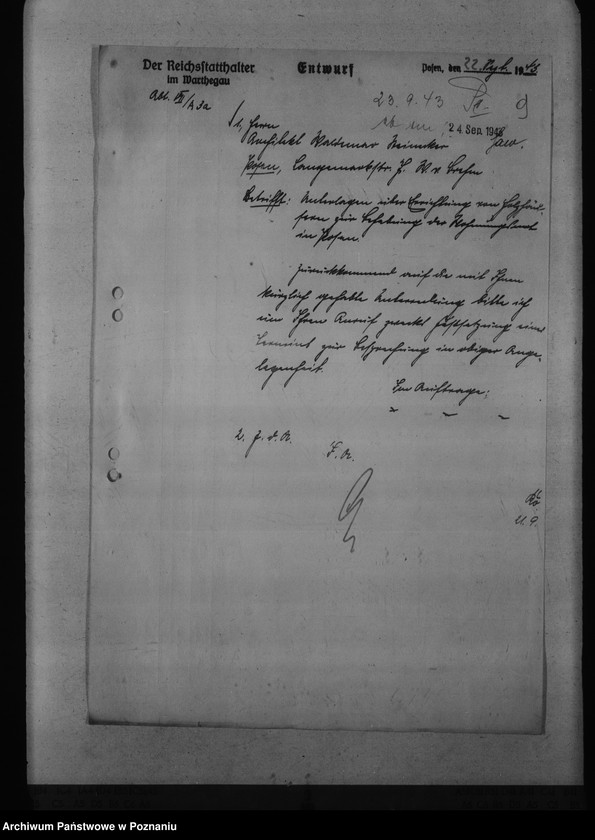 Der Reichsstatthalter
im Warthegau
Entwurf
Posen, den 22. Sept. 1943
Abt. VII/A 3a
23.9.43
24 Sep. 1943
1, Herrn
Architekt Waldemar
Posen, Langemarckstr.
Betrifft: Unterlagen über Errichtung von Holzhäu-
sern zur Behebung der Wohnungsnot
in Posen.
Zurückkommend auf die mit Ihnen
kürzlich gehabte Unterredung bitte ich
um Ihren Anruf zwecks Festsetzung eines
Termins zur Besprechung in obiger Ange-
legenheit.
Im Auftrage:
2. Z. d. A.
Archiwum Państwowe w Poznaniu